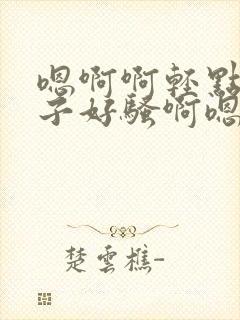 嗯啊啊轻點
子好騷啊嗯
楚雲樵-